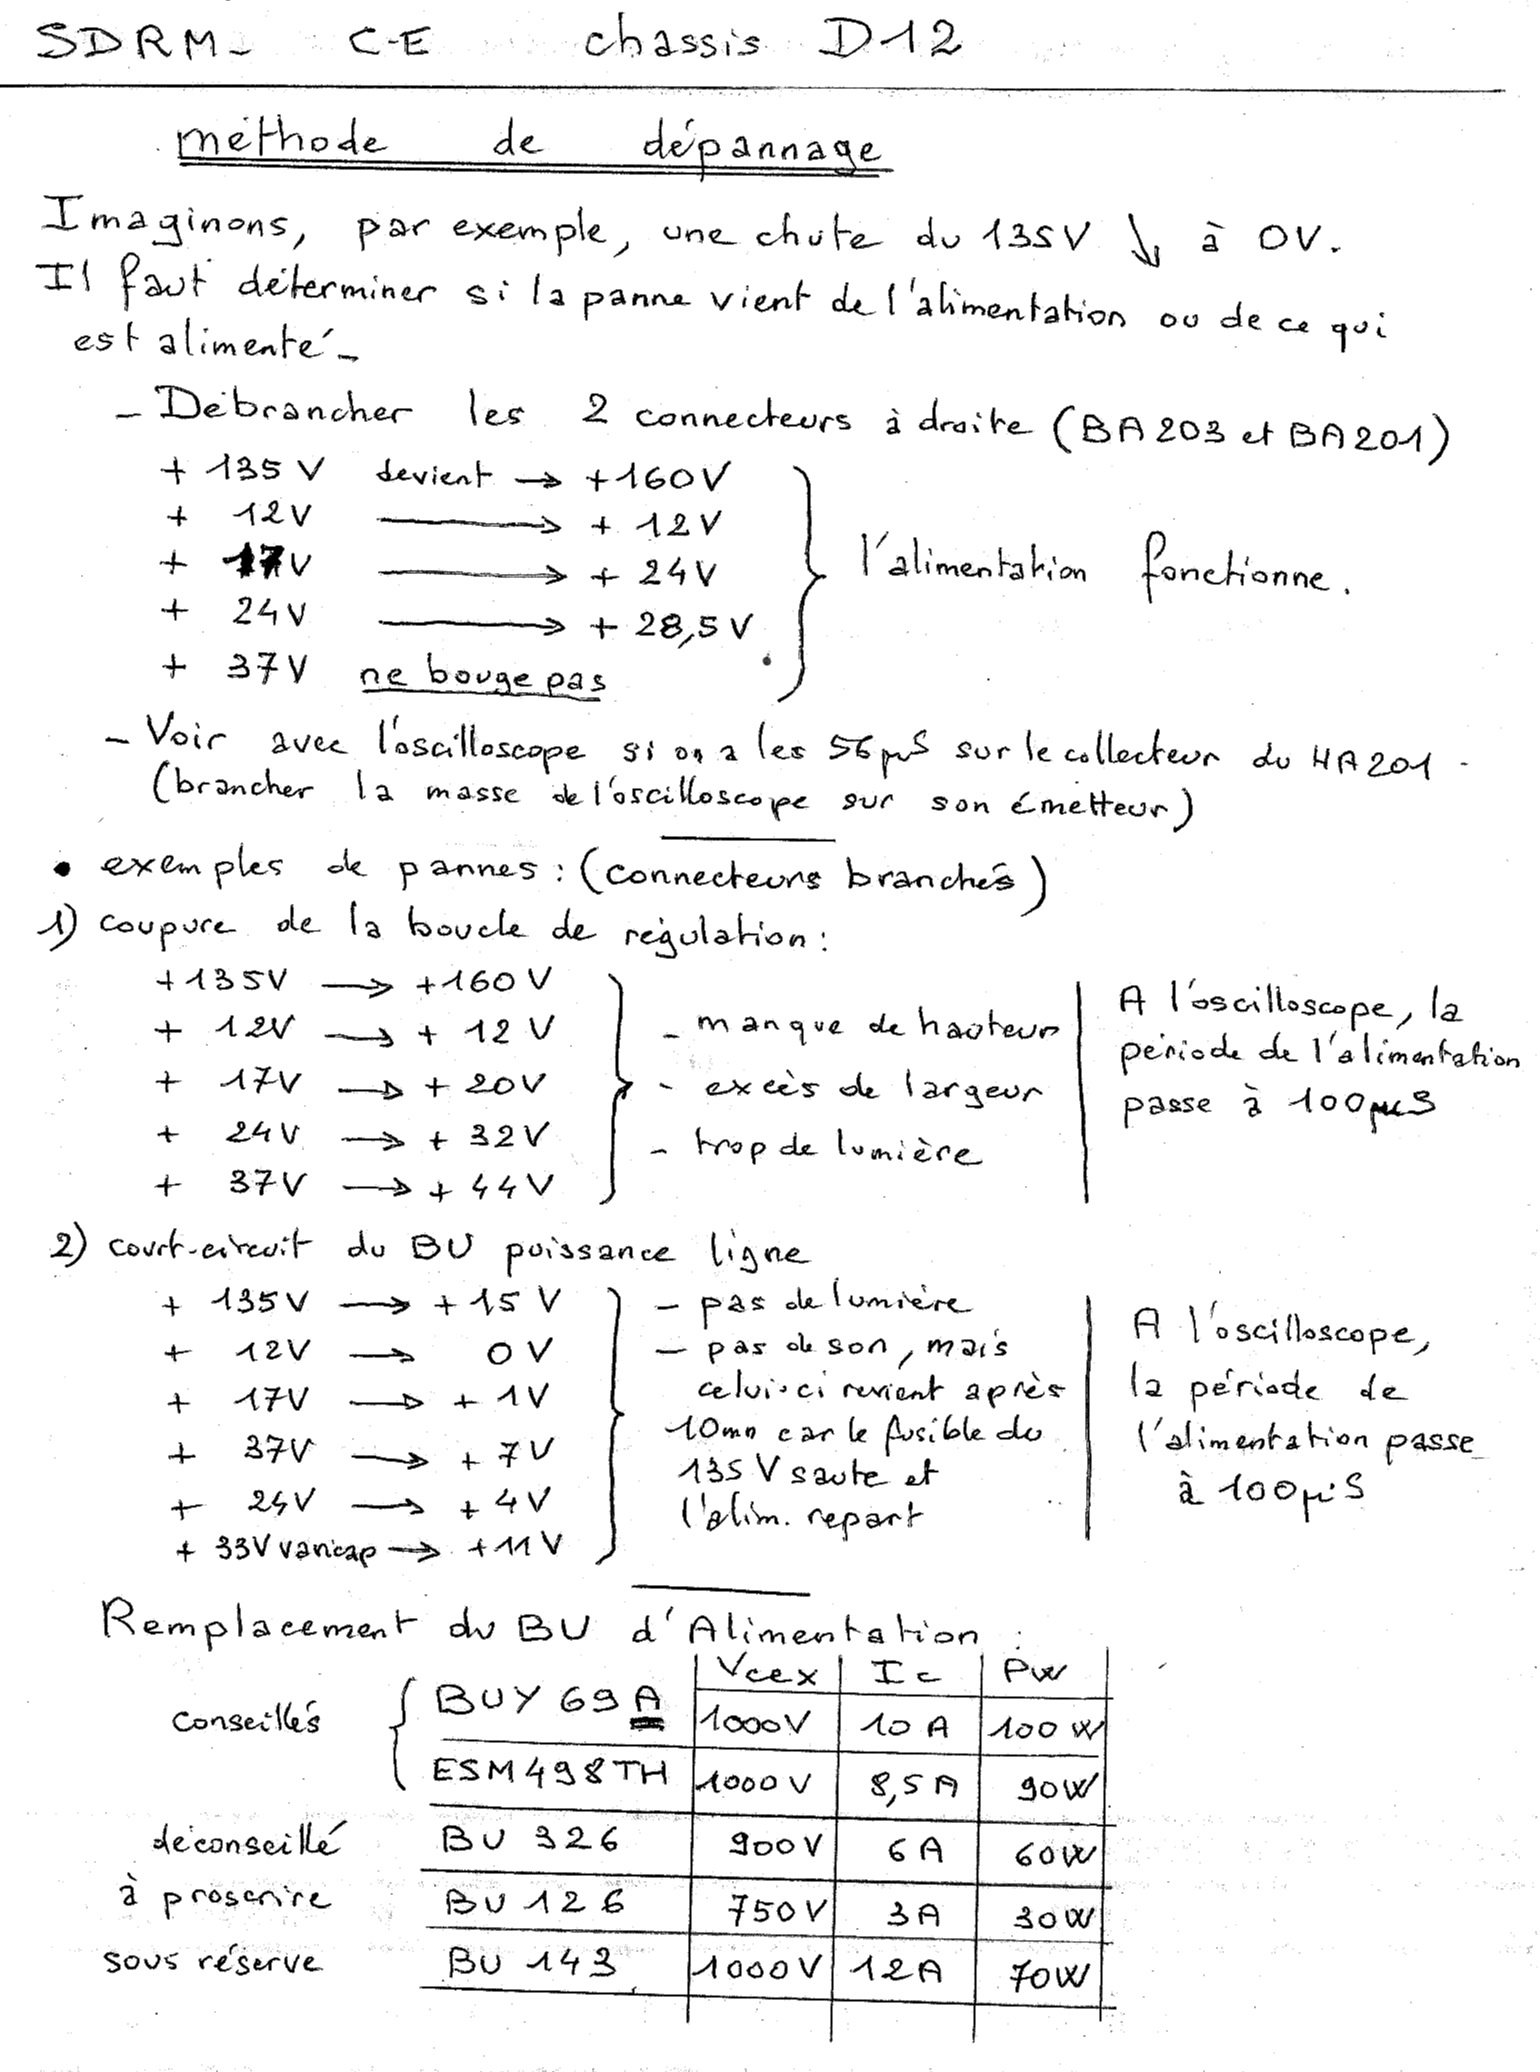 SDRM- C-E chassis D12
méthode de dépannage
Imaginons, par exemple, une chute du 135V ↓ à 0V.
Il faut déterminer si la panne vient de l'alimentation ou de ce qui
est alimenté-
- Débrancher les 2 connecteurs à droite (BA203 et BA201)
+ 135 V devient → +160V
+ 12V → + 12V
+ 17V → + 24V
+ 24V → + 28,5V
+ 37V ne bouge pas
l'alimentation fonctionne.
- Voir avec l'oscilloscope si on a les 56µS sur le collecteur du HA201.
(brancher la masse de l'oscilloscope sur son émetteur)
• exemples de pannes : (connecteurs branchés)
1) coupure de la boucle de régulation :
+135V → +160V
+ 12V → + 12V
+ 17V → + 20V
+ 24V → + 32V
+ 37V → + 44V
- manque de hauteur
- excès de largeur
- trop de lumière
A l'oscilloscope, la
période de l'alimentation
passe à 100µS
2) court-circuit du BU puissance ligne
+ 135V → + 15 V
+ 12V → 0V
+ 17V → + 1V
+ 37V → + 7V
+ 24V → + 4V
+ 33V varicap → +11V
- pas de lumière
- pas de son, mais
celui-ci revient après
10mn car le fusible du
135 V saute et
l'alim. repart
A l'oscilloscope,
la période de
l'alimentation passe
à 100µS
Remplacement du BU d'Alimentation :
Vcex Ic Pw
conseillés BUY 69 A 1000V 10 A 100 W
ESM498TH 1000V 8,5A 90W
déconseillé BU 326 900V 6A 60W
à proscrire BU 126 750V 3A 30W
sous réserve BU 143 1000V 12A 70W